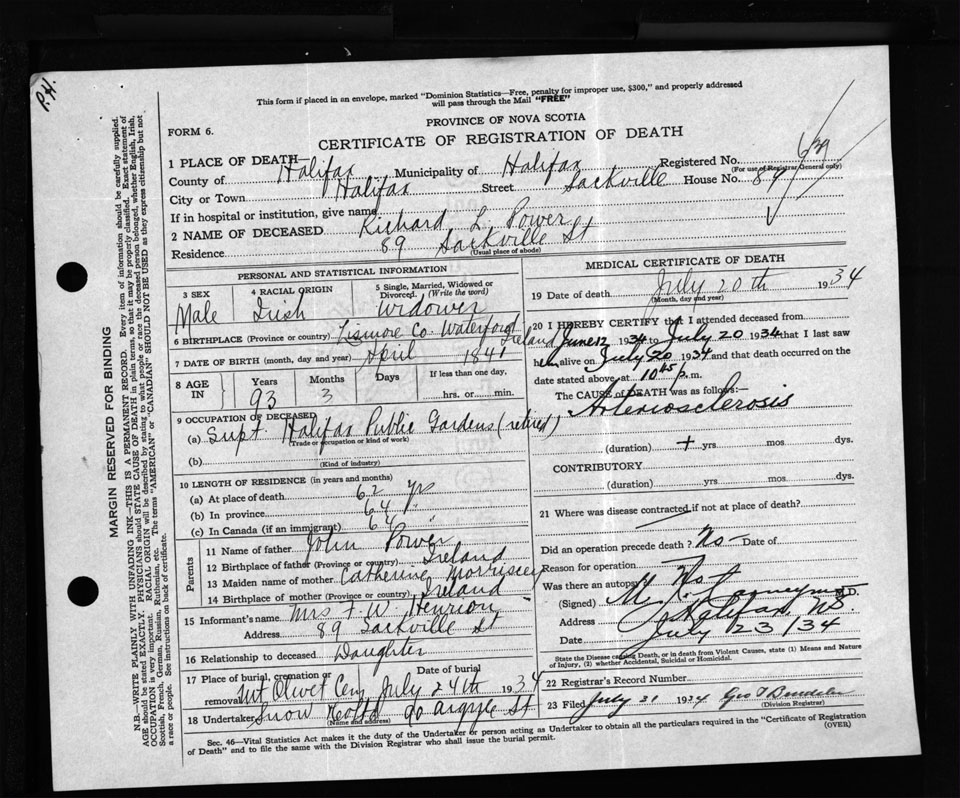 P.H.
This form if placed in an envelope, marked "Dominion Statistics—Free, penalty for improper use, $300," and properly addressed
will pass through the Mail "FREE"
PROVINCE OF NOVA SCOTIA
FORM 6.
CERTIFICATE OF REGISTRATION OF DEATH
1 PLACE OF DEATH—
County of Halifax Municipality of Halifax Registered No.
(For use of Registrar General only)
City or Town Halifax Street Sackville House No. 89
If in hospital or institution, give name
2 NAME OF DECEASED Richard L. Power
Residence 89 Sackville St
(Usual place of abode)
PERSONAL AND STATISTICAL INFORMATION
3 SEX 4 RACIAL ORIGIN 5 Single, Married, Widowed or Divorced. (Write the word)
Male Irish Widower
6 BIRTHPLACE (Province or country) Lismore Co. Waterford Ireland
7 DATE OF BIRTH (month, day and year) April 1841
8 AGE IN Years Months Days If less than one day,
93 3 hrs. or min.
9 OCCUPATION OF DECEASED
(a) Supt. Halifax Public Gardens (retired)
(Trade or occupation or kind of work)
(b)
(Kind of industry)
10 LENGTH OF RESIDENCE (in years and months)
(a) At place of death 62 yrs
(b) In province 64 "
(c) In Canada (if an immigrant) 64 "
Parents
11 Name of father John Power
12 Birthplace of father (Province or country) Ireland
13 Maiden name of mother Catherine Morrissey
14 Birthplace of mother (Province or country) Ireland
15 Informant's name Mrs F. W. Henrion
Address 89 Sackville St
16 Relationship to deceased Daughter
17 Place of burial, cremation or removal Date of burial
Mt Olivet Cem July 24th 1934
18 Undertaker Snow & Co Ltd 90 Argyle St
(Name and address)
MEDICAL CERTIFICATE OF DEATH
19 Date of death July 20th 1934
(Month, day and year)
20 I HEREBY CERTIFY that I attended deceased from
June 12 1934 to July 20 1934 that I last saw
him alive on July 20 1934 and that death occurred on the
date stated above, at 10 45 p.m.
The CAUSE of DEATH was as follows:—
Arteriosclerosis
(duration) + yrs. mos dys.
CONTRIBUTORY
(duration) yrs. mos. dys.
21 Where was disease contracted if not at place of death?
Did an operation precede death? No Date of
Reason for operation
Was there an autopsy No
(Signed) M.D.
Address Halifax, N.S.
Date July 23/34
State the Disease causing Death, or in death from Violent Causes, state (1) Means and Nature
of Injury, (2) whether Accidental, Suicidal or Homicidal.
22 Registrar's Record Number
23 Filed July 21 1934 Geo
(Division Registrar)
Sec. 46—Vital Statistics Act makes it the duty of the Undertaker or person acting as Undertaker to obtain all the particulars required in the "Certificate of Registration
of Death" and to file the same with the Division Registrar who shall issue the burial permit.
(OVER)
MARGIN RESERVED FOR BINDING
N.B.—WRITE PLAINLY WITH UNFADING INK—THIS IS A PERMANENT RECORD. Every item of information should be carefully supplied.
AGE should be stated EXACTLY. PHYSICIANS should STATE CAUSE OF DEATH in plain terms, so that it may be properly classified. Exact statement of
OCCUPATION is very important. RACIAL ORIGIN will be described by stating to what people or race the deceased person belonged, whether English, Irish,
Scottish, French, German, Russian, Ruthenian, etc. The terms "AMERICAN" or "CANADIAN" SHOULD NOT BE USED as they express citizenship but not
a race or people. See instructions on back of certificate.